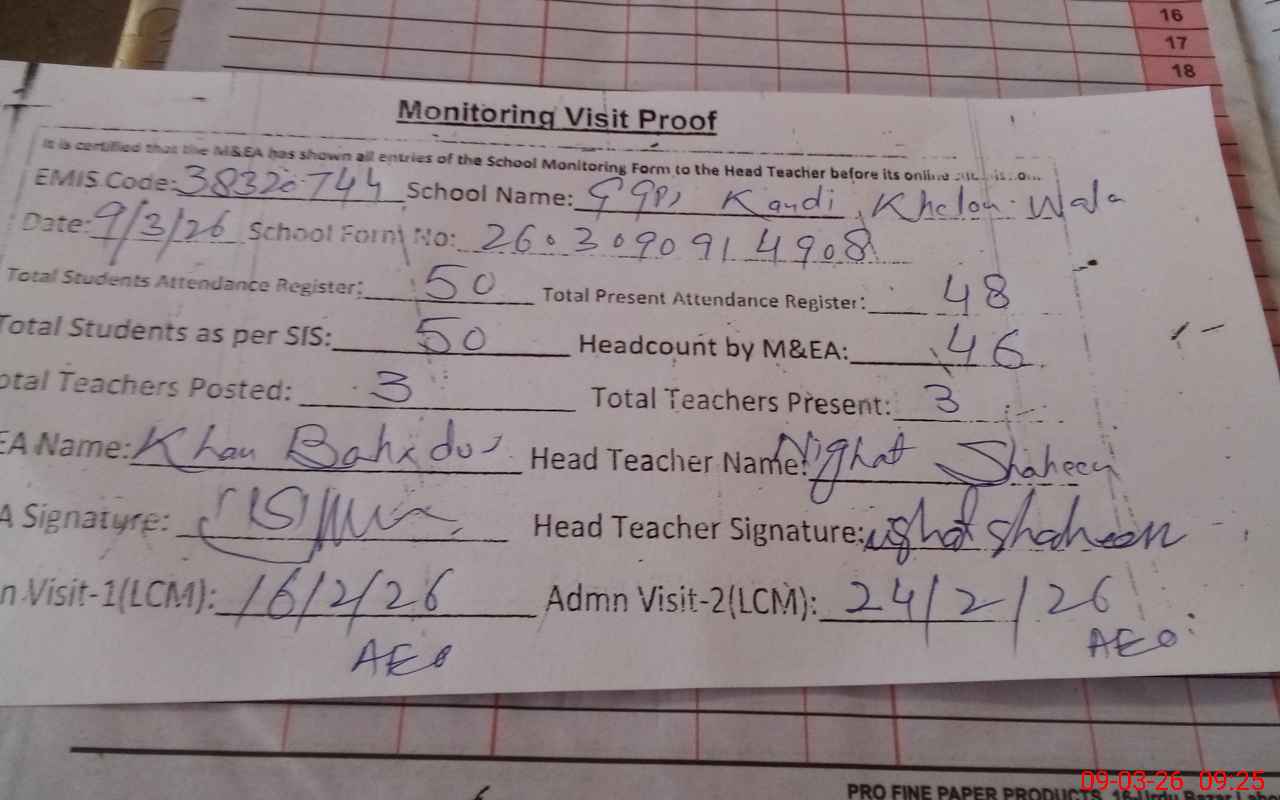 16
17
18
Monitoring Visit Proof
It is certified that the M&EA has shown all entries of the School Monitoring Form to the Head Teacher before its online
EMIS Code: 38320744 School Name: GGPS Kandi Khelan Wala
Date: 9/3/26 School Form No: 260309094908
Total Students Attendance Register: 50 Total Present Attendance Register: 48
Total Students as per SIS: 50 Headcount by M&EA: 46
otal Teachers Posted: 3 Total Teachers Present: 3
EA Name: Khan Bahadur Head Teacher Name: Nighat Shaheen
A Signature: Head Teacher Signature: nighat shaheen
n Visit-1(LCM): 16/2/26 Admn Visit-2(LCM): 24/2/26
AEO AEO
PRO FINE PAPER PRODUCTS, 16-Urdu Bazar Laho
09-03-26 09:25